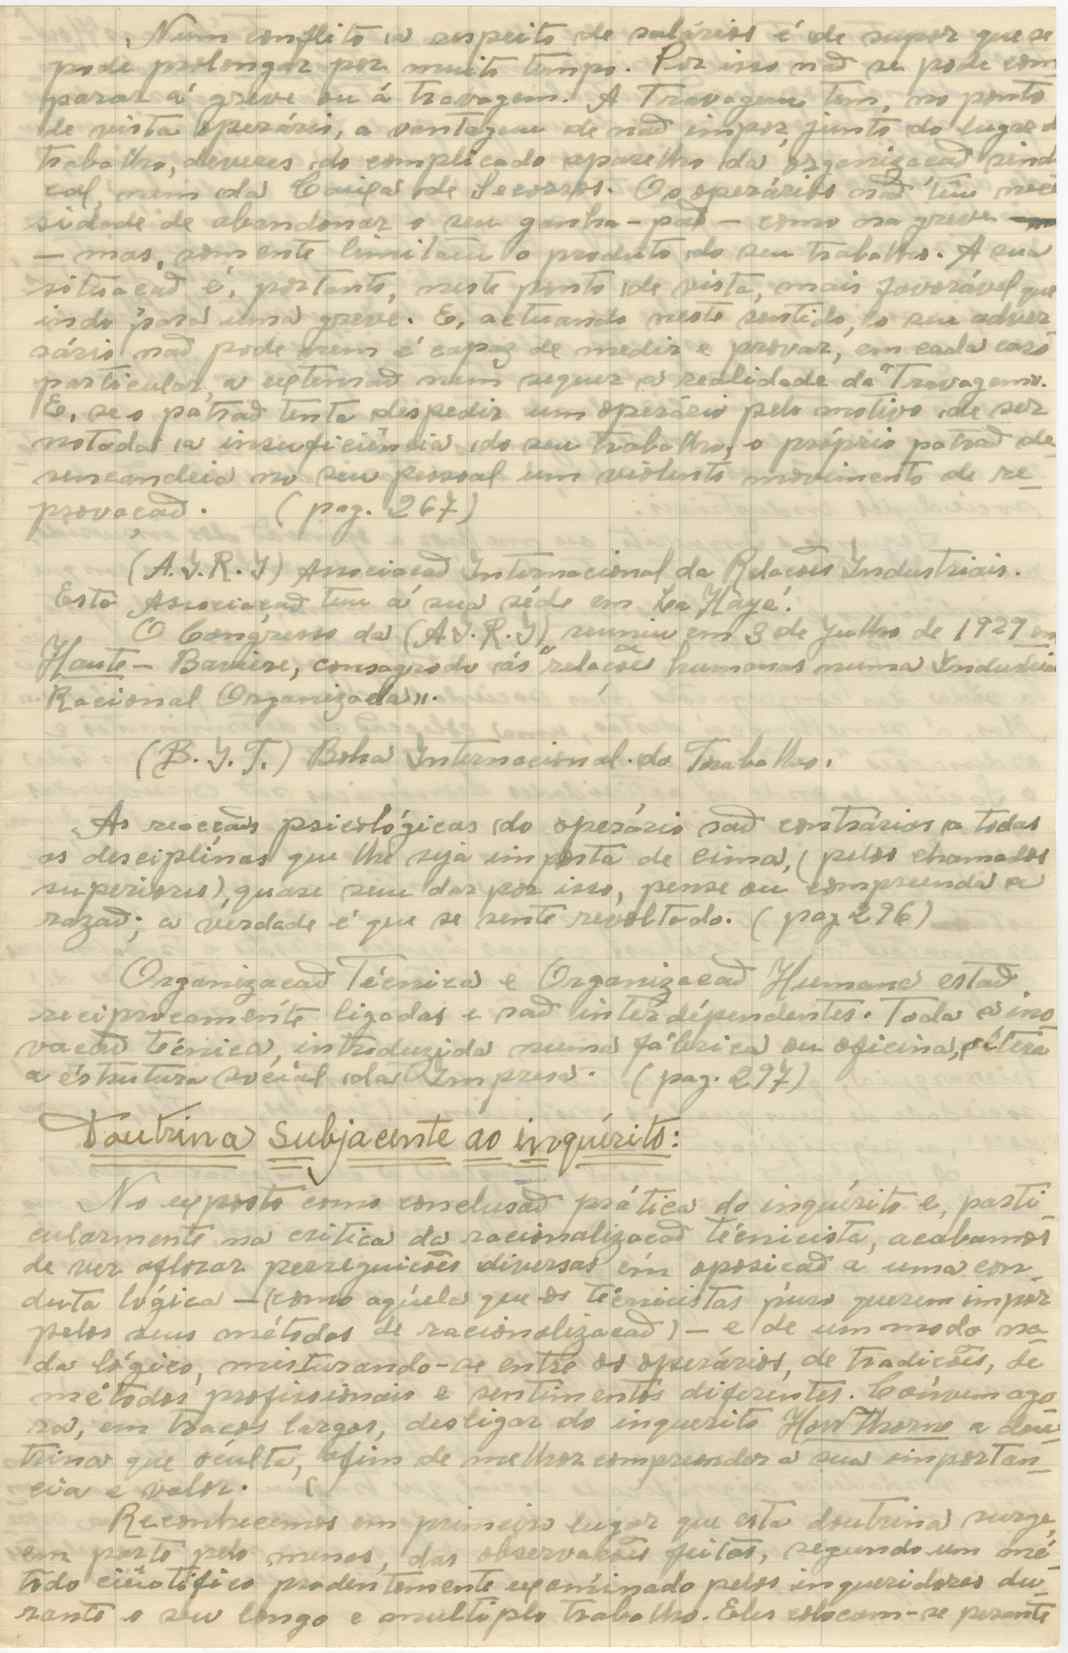 Num conflito a respeito de salários é de supor que se
pode prolongar por muito tempo. Por isso não se pode com
parar á greve ou á travagem. A Travagem tem, no ponto
de vista operário, a vantagem de não impor, junto do lugar d
trabalho, deveres do complicado aparelho da organização sind
cal, nem da Caixa de Socorros. Os operários não têm neces
sidade de abandonar o seu ganha-pão — como na greve
— mas, somente limitam o produto do seu trabalho. A sua
situação é, portanto, neste ponto de vista, mais favorável que
indo para uma greve. E, actuando neste sentido, o seu adver
sário não pode nem é capaz de medir e provar, em cada caso
particular, a extensão nem sequer a realidade da Travagem.
E, se o patrão tenta despedir um operário pelo motivo de ser
notada a insuficiência do seu trabalho, o próprio patrão de-
sencandeia no seu pessoal um violento movimento de re-
provação. (pag. 267)
(A.I.R.I) Associação Internacional da Relacões Industriais.
Esta Associação tem á sua séde em La Haye.
O Congresso da (A.I.R.I) reuniu em 3 de Julho de 1929 em
Haute - Baviere, consagrado ás "relacoẽ humanas numa Industria
Racional Organizada".
(B.I.T.) Bolsa Internacional do Trabalho.
As reacções psicológicas do operário são contrários a todas
as desciplinas que lhe seja imposta de cima, (pelos chamados
superiores), quase sem dar por isso, pense ou compreenda a
razão; a verdade é que se sente revoltado. (pag 296)
Organização Técnica e Organização Humana estão
reciprocamente ligadas e são interdépendentes. Toda a ino
vação técnica, introduzida numa fábrica ou oficina, altera
a éstrutura sócial da Impresa. (pag. 297)
Doutrina Subjacente ao inquérito:
No exposto como conclusão prática do inquérito e, parti
cularmente na critica da racionalização técnicista, acabamos
de ver aflorar perseguicões diversas em oposição a uma con-
duta lógica — (como aquela que os técnicistas puro querem impor
pelos seus métodos de racionalização) — e de um modo na
da lógico, misturando-se entre os operários, de tradicões, de
métodos profissionais e sentimentos diferentes. Convem ago
ra, em traços largos, desligar do inquerito Hawthorne a dou-
trina que óculta, afim de melhor compreender a sua importan-
cia e valor.
Reconhecemos em primeiro lugar que esta doutrina surge,
em parte pelo menos, das observações feitas, segundo um mé-
todo ciêntifico prudentemente examinado pelos inqueridores du-
rante o seu longo e multiplo trabalho. Eles colocam-se perante